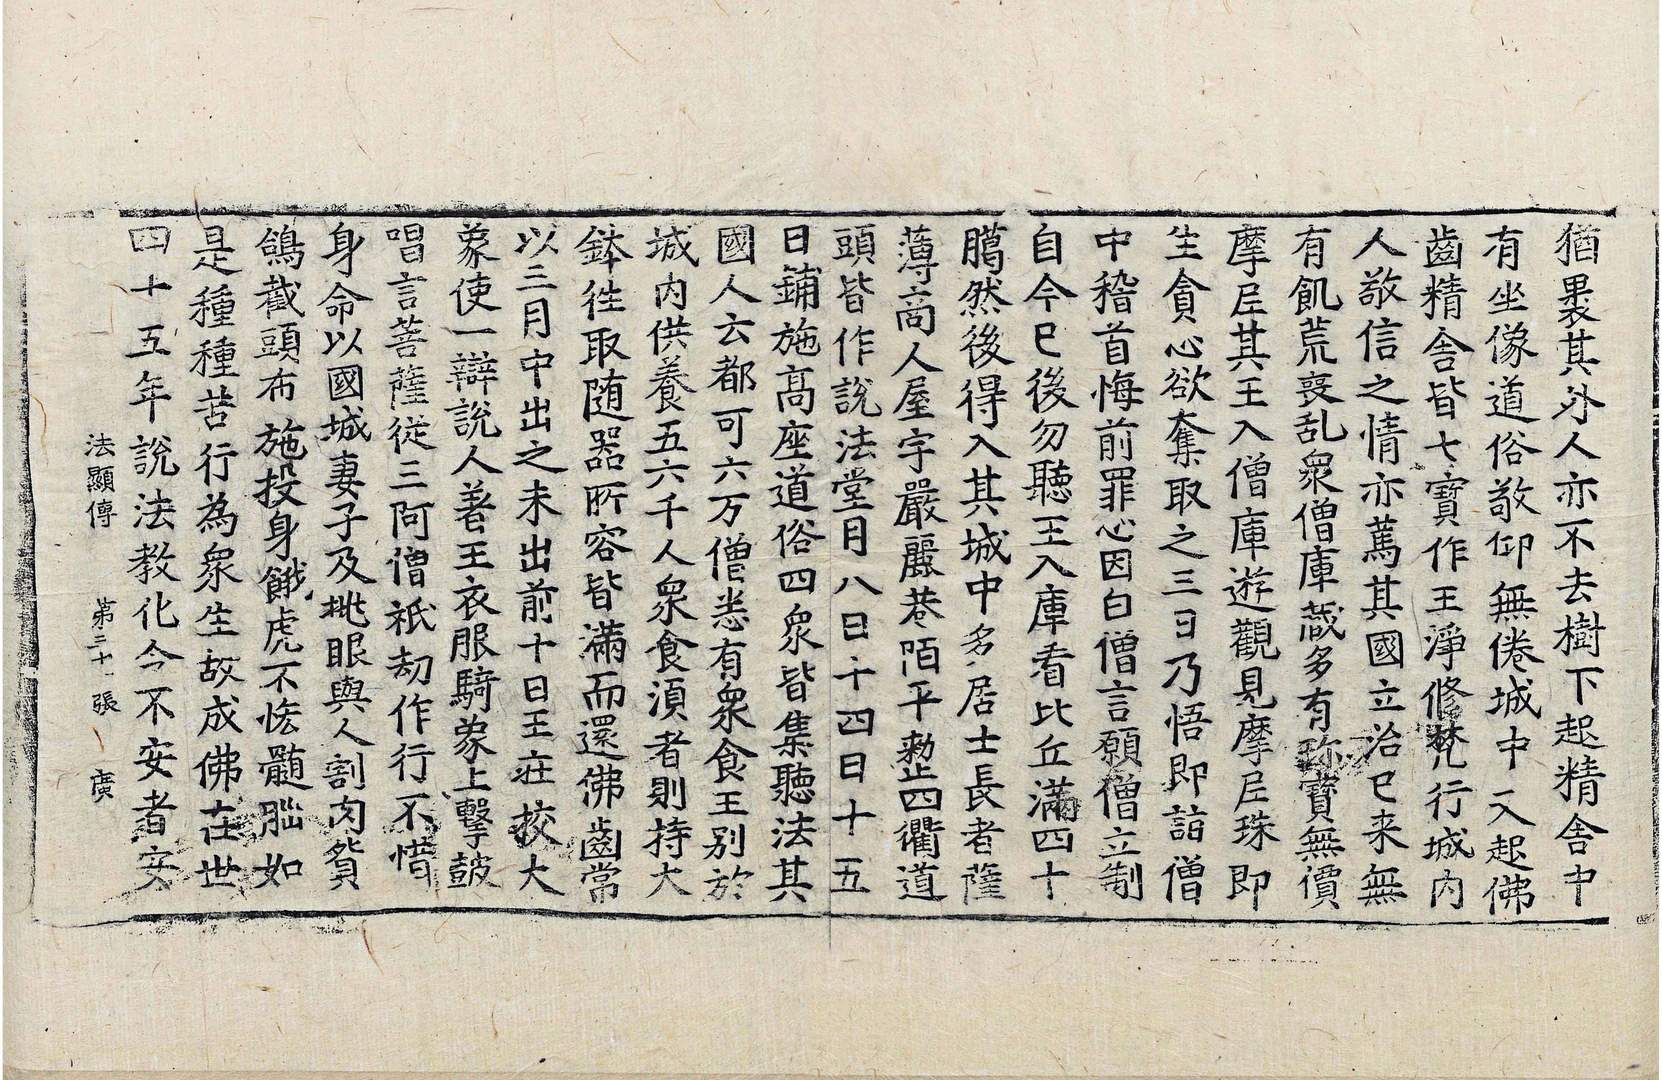 猶裹其外人亦不去樹下起精舍中
有坐像道俗敬仰無倦城中又起佛
齒精舍皆七寶作王淨修梵行城内
人敬信之情亦篤其國立治已来無
有飢荒喪乱衆僧庫藏多有珎寶無價
摩尼其王入僧庫遊觀見摩尼珠即
生貪心欲奪取之三日乃悟即詣僧
中稽首悔前罪心因白僧言願僧立制
自今已後勿聽王入庫看比丘滿四十
臈然後得入其城中多居士長者薩
薄商人屋宇嚴麗巷陌平𠡠四衢道
頭皆作說法堂月八日十四日十五
日鋪施髙座道俗四衆皆集聽法其
國人云都可六万僧悉有衆食王别於
城内供養五六千人衆食湏者則持大
鉢徃取随器所容皆滿而還佛齒常
以三月中出之未出前十日王莊挍大
象使一辯說人著王衣服騎象上擊鼓
唱言菩薩從三阿僧祇劫作行不惜
身命以國城妻子及挑眼與人割肉貿
鴿截頭布施投身餓虎不恡髓𦛁如
是種種苦行為衆生故成佛在世
四十五年說法教化令不安者安
法顯傳 第三十一張 廣